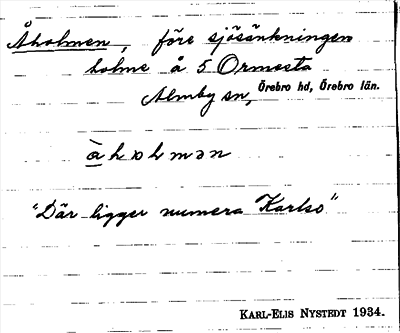 Åholmen, före sjösänkningen
holme å 5 Ormesta
Almby sn, Örebro hd, Örebro län.
"Där ligger numera Karlso"
KARL-ELIS NYSTEDT 1934.